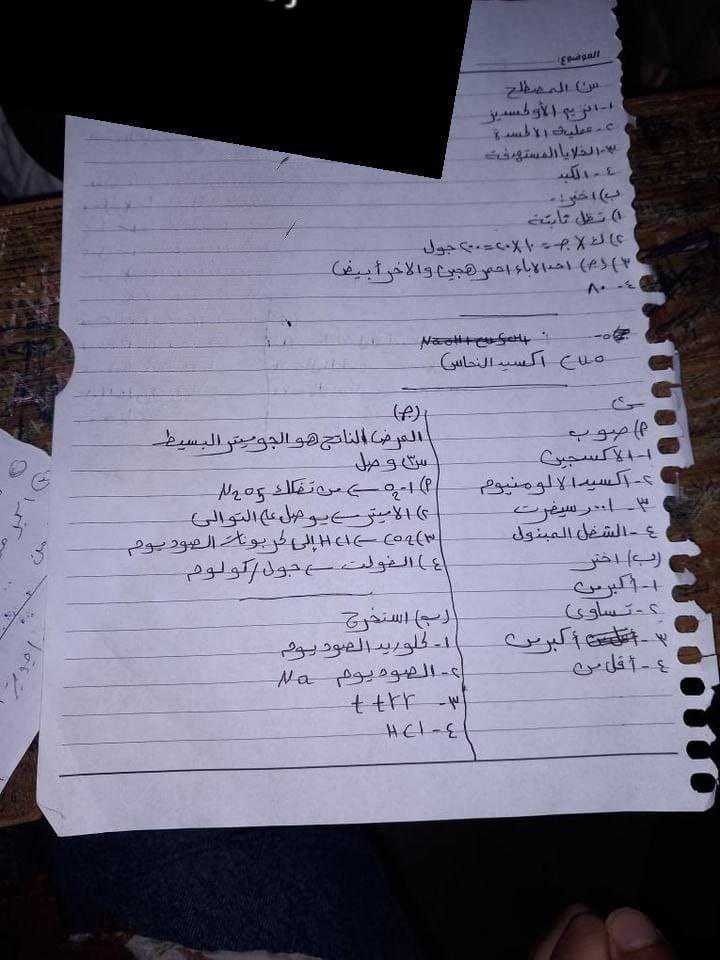 الموضوع:
س١ المصطلح
١- انزيم الأوكسديز
٢- عملية الأكسدة
٣- الخلايا المستهدفة
٤- الكبد
ب) اختر:-
١) تظل ثابتة
٢) ك × جـ = ١٠ × ٢٠ = ٢٠٠ جول
٣) (جـ) احد الاباء احمر هجين والاخر أبيض
٤- ٨٠
CuO اكسيد النحاس
س٢
٩) صوب
١- الأكسجين
٢- اكسيد الالومنيوم
٤- الشغل المبذول
(ب) اختر
١- أكبر من
٢- تساوى
٣- أكبر من
٤- أقل من
(جـ)
العرض الناتج هو الجوميتر البسيط
س٣ وصل
٩) ١- O2 ← من تفكك N2O5
٢) الاميتر ← يوصل على التوالى
٣) CO2 ← HCl إلى كربونات الصوديوم
٤) الفولت ← جول/كولوم
(ب) استخرج
١- كلوريد الصوديوم
٢- الصوديوم Na
٣- ttrr
٤- HCl